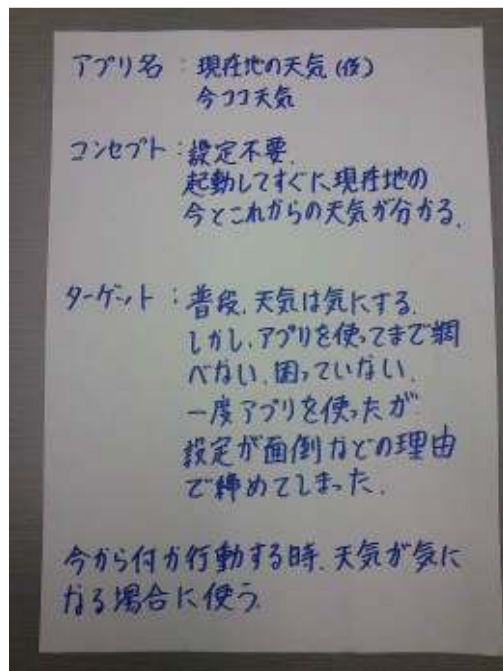 アプリ名：現在地の天気(仮)
今ココ天気
コンセプト：設定不要.
起動してすぐに、現在地の
今とこれからの天気が分かる.
ターゲット：普段、天気は気にする.
しかし、アプリを使ってまで調
べない、困っていない.
一度アプリを使ったが
設定が面倒などの理由
で締めてしまった.
今から何か行動する時、天気が気に
なる場合に使う.